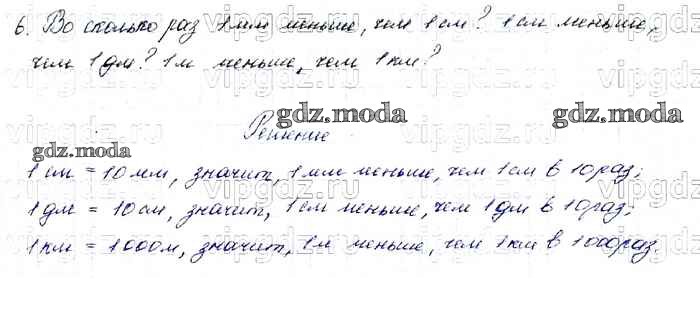 6. Во сколько раз 1 мм меньше, чем 1 см? 1 см меньше,
чем 1 дм? 1 м меньше, чем 1 км?
gdz.moda
gdz.moda
Решение
gdz.moda
1 см = 10 мм, значит, 1 мм меньше, чем 1 см в 10 раз;
1 дм = 10 см, значит, 1 см меньше, чем 1 дм в 10 раз;
1 км = 1000 м, значит, 1 м меньше, чем 1 км в 1000 раз.
vipgdz.ru